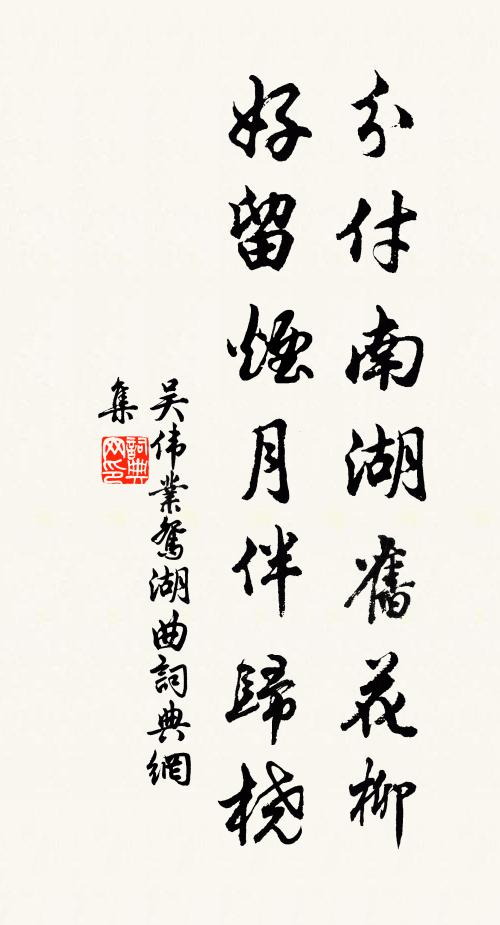 分付南湖舊花柳
好留煙月伴歸橈
吴伟業鴛湖曲詞典網
集
詞典网印